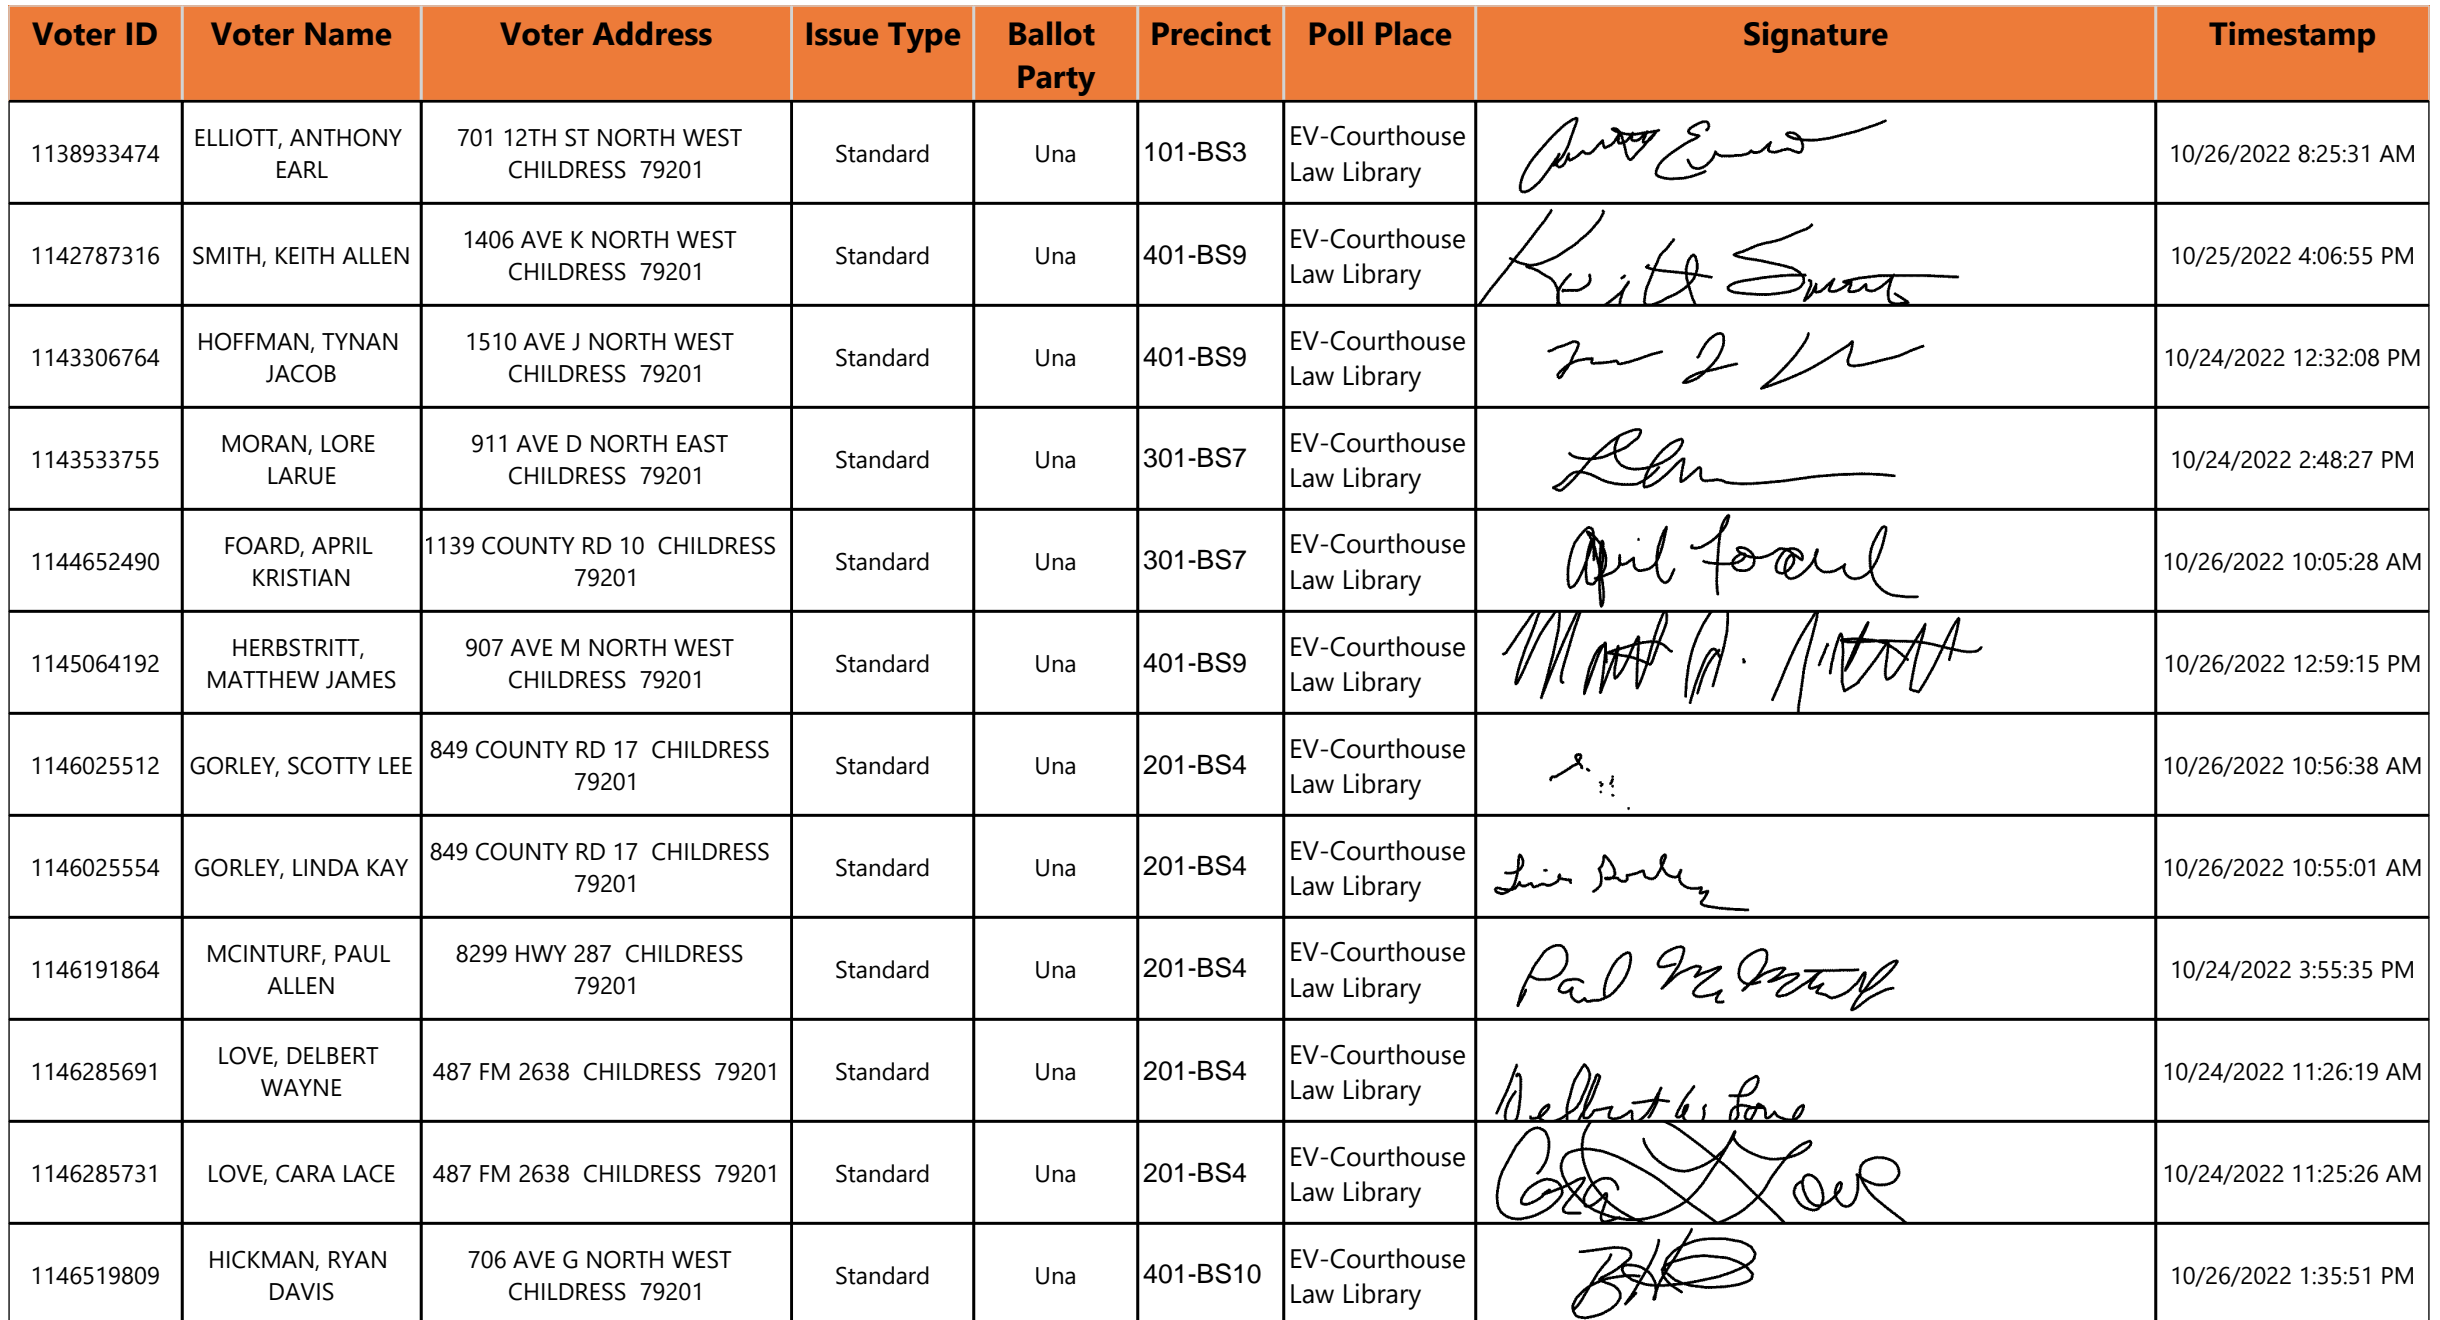 Voter ID Voter Name Voter Address Issue Type Ballot Party Precinct Poll Place Signature Timestamp
1138933474 ELLIOTT, ANTHONY EARL 701 12TH ST NORTH WEST CHILDRESS 79201 Standard Una 101-BS3 EV-Courthouse Law Library 10/26/2022 8:25:31 AM
1142787316 SMITH, KEITH ALLEN 1406 AVE K NORTH WEST CHILDRESS 79201 Standard Una 401-BS9 EV-Courthouse Law Library Keith Smith 10/25/2022 4:06:55 PM
1143306764 HOFFMAN, TYNAN JACOB 1510 AVE J NORTH WEST CHILDRESS 79201 Standard Una 401-BS9 EV-Courthouse Law Library 10/24/2022 12:32:08 PM
1143533755 MORAN, LORE LARUE 911 AVE D NORTH EAST CHILDRESS 79201 Standard Una 301-BS7 EV-Courthouse Law Library 10/24/2022 2:48:27 PM
1144652490 FOARD, APRIL KRISTIAN 1139 COUNTY RD 10 CHILDRESS 79201 Standard Una 301-BS7 EV-Courthouse Law Library April Foard 10/26/2022 10:05:28 AM
1145064192 HERBSTRITT, MATTHEW JAMES 907 AVE M NORTH WEST CHILDRESS 79201 Standard Una 401-BS9 EV-Courthouse Law Library 10/26/2022 12:59:15 PM
1146025512 GORLEY, SCOTTY LEE 849 COUNTY RD 17 CHILDRESS 79201 Standard Una 201-BS4 EV-Courthouse Law Library 10/26/2022 10:56:38 AM
1146025554 GORLEY, LINDA KAY 849 COUNTY RD 17 CHILDRESS 79201 Standard Una 201-BS4 EV-Courthouse Law Library 10/26/2022 10:55:01 AM
1146191864 MCINTURF, PAUL ALLEN 8299 HWY 287 CHILDRESS 79201 Standard Una 201-BS4 EV-Courthouse Law Library Paul McInturf 10/24/2022 3:55:35 PM
1146285691 LOVE, DELBERT WAYNE 487 FM 2638 CHILDRESS 79201 Standard Una 201-BS4 EV-Courthouse Law Library Delbert W Love 10/24/2022 11:26:19 AM
1146285731 LOVE, CARA LACE 487 FM 2638 CHILDRESS 79201 Standard Una 201-BS4 EV-Courthouse Law Library Cara Love 10/24/2022 11:25:26 AM
1146519809 HICKMAN, RYAN DAVIS 706 AVE G NORTH WEST CHILDRESS 79201 Standard Una 401-BS10 EV-Courthouse Law Library 10/26/2022 1:35:51 PM